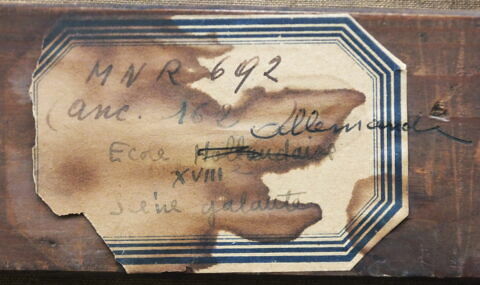 MNR 692
(anc. 162) Allemande
Ecole Hollandaise
XVIII
scène galante